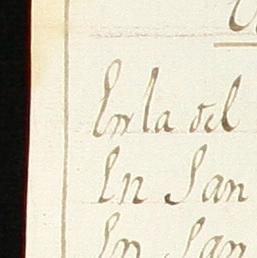 En la del
En San
En San